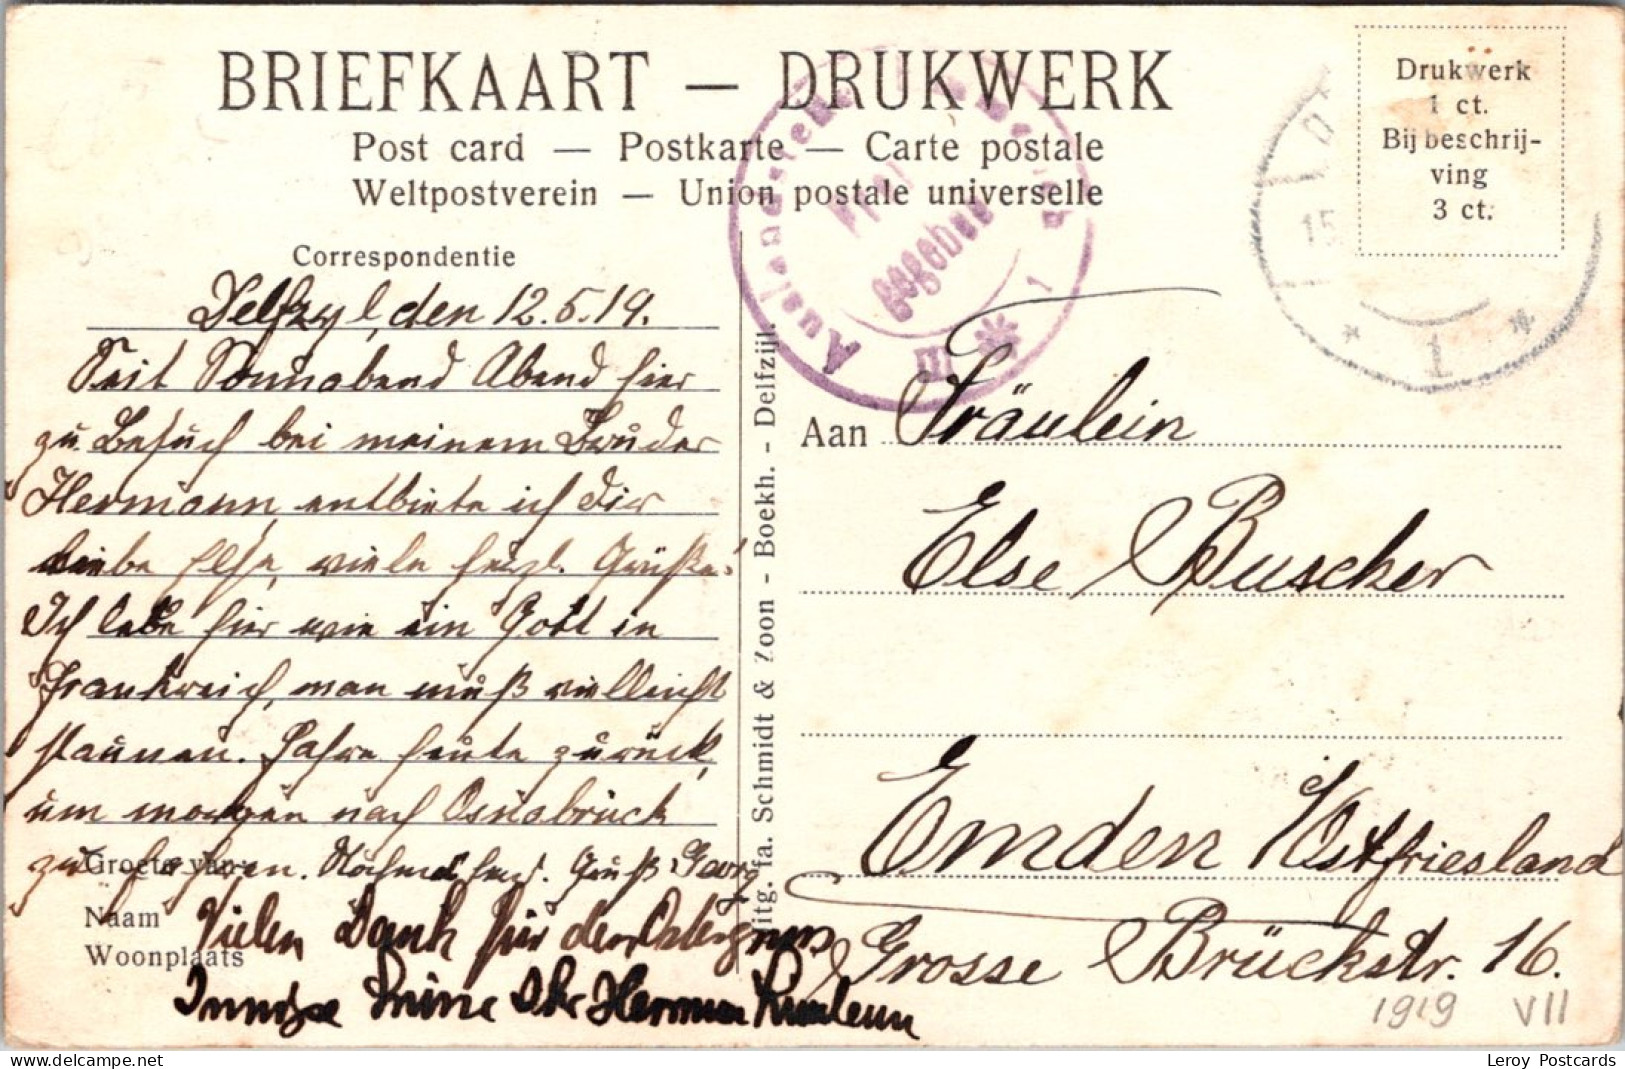 BRIEFKAART — DRUKWERK
Post card — Postkarte — Carte postale
Weltpostverein — Union postale universelle
Drukwerk
1 ct.
Bij beschrij-
ving
3 ct.
Auslandstelle
Frei
gegeben
III
1
15
1
Correspondentie
Delfzyl, den 12.5.19.
Seit Sonnabend Abend hier
zu Besuch bei meinem Bruder
Hermann, entbiete ich Dir
liebe Else, viele herzl. Grüße!
Ich lebe hier wie ein Gott in
Frankreich, man muß vielleicht
staunen. Fahre heute zurück,
um morgen nach Osnabrück
zu fahren. Nochmals herzl. Gruß Georg
Groete van:
Naam
Woonplaats
Vielen Dank für den Ostergruss
Hermann
Uitg. fa. Schmidt & Zoon - Boekh. - Delfzijl.
Aan Fräulein
Else Buscher
Emden / Ostfriesland
Grosse Brückstr. 16.
1919 VII
Leroy Postcards